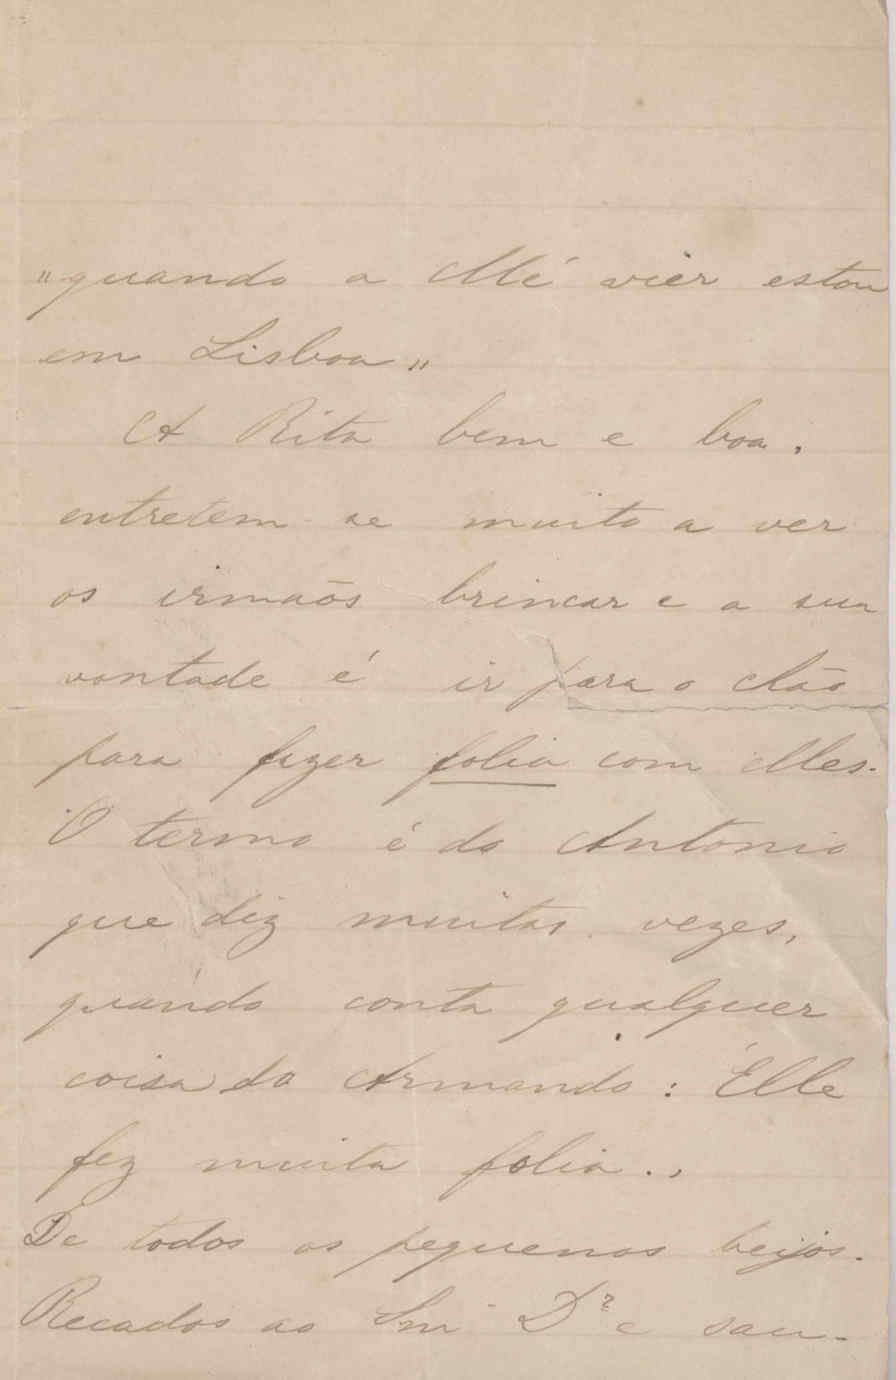 "quando a Mé vier estou
em Lisboa"
A Rita bem e boa.
entretem-se muito a ver
os irmaõs brincar e a sua
vontade é ir para o chão
para fazer folia com elles.
O termo é do Antonio
que diz muitas vezes,
quando conta qualquer
coisa do Armando: "Elle
fez muita folia."
De todos os pequenos beijos.
Recados ao Snr Dr e sau-